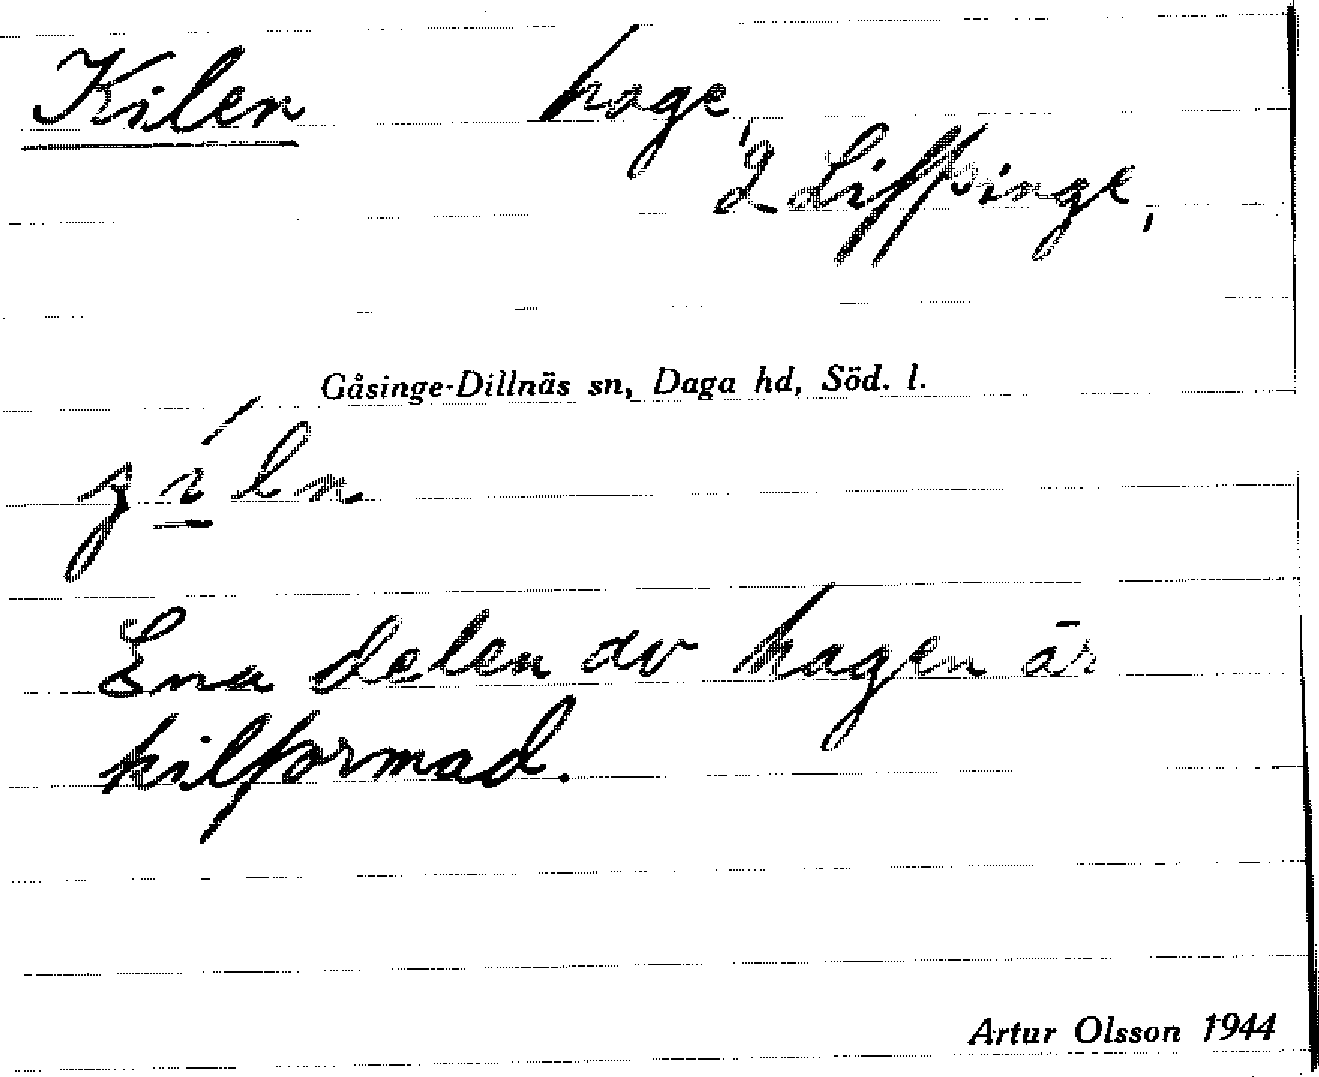 Kilen hage,
Gåsinge-Dillnäs sn, Daga hd, Söd. l.
Ena delen av hagen är
kilformad.
Artur Olsson 1944